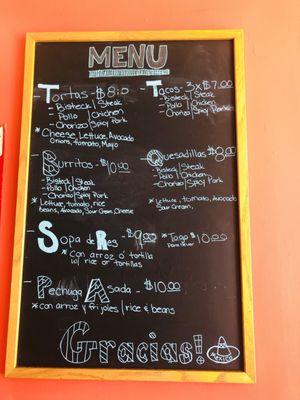 MENU
- Tortas - $8.00
- Bisteck / Steak
- Pollo / Chicken
- Chorizo / Spicy Pork
* Cheese, Lettuce, Avocado
Onions, tomato, Mayo
- Tacos - 3x$7.00
- Bisteck / Steak
- Pollo / Chicken
- Chorizo / Spicy Pork
- Burritos - $10.00
- Bisteck / Steak
- Pollo / Chicken
- Chorizo / Spicy Pork
* Lettuce, tomato, rice
beans, Avocado, Sour Cream, Cheese
- Quesadillas - $8.00
- Bisteck / Steak
- Pollo / Chicken
- Chorizo / Spicy Pork
* Lettuce, tomato, Avocado
Sour Cream,
- Sopa de Res - $9.00 * Togo $10.00
Para llevar
* con arroz ó tortilla
w/ rice or tortillas
- Pechuga Asada - $10.00
* con arroz y frijoles / rice & beans
Gracias!
MEXICO